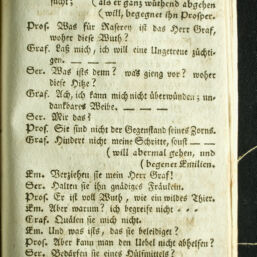 sucht; (als er ganz wüthend abgehen
(will, begegnet ihn Prosper.
Pros. Was für Raserey ist das Herr Graf,
woher diese Wuth?
Graf. Laß mich, ich will eine Ungetreue züchti-
gen.
Ser. Was ists denn? was gieng vor? woher
diese Hitze?
Graf. Ach, ich kann mich nicht überwünden; un-
dankbares Weibe.
Ser. Mir das?
Pros. Sie sind nicht der Gegenstand seines Zorns.
Graf. Hindert nicht meine Schritte, sonst
(will abermal gehen, und
(begener Emilien.
Em. Verziehen sie mein Herr Graf!
Ser. Halten sie ihn gnädiges Fräulein.
Pros. Er ist voll Wuth, wie ein wildes Thier.
Em. Aber warum? ich begreife nicht - - -
Graf. Quälen sie mich nicht.
Em. Und was ists, das sie beleidiget?
Pros. Aber kann man den Uebel nicht abhelfen?
Ser. Bedürfen sie eines Hülfsmittels?